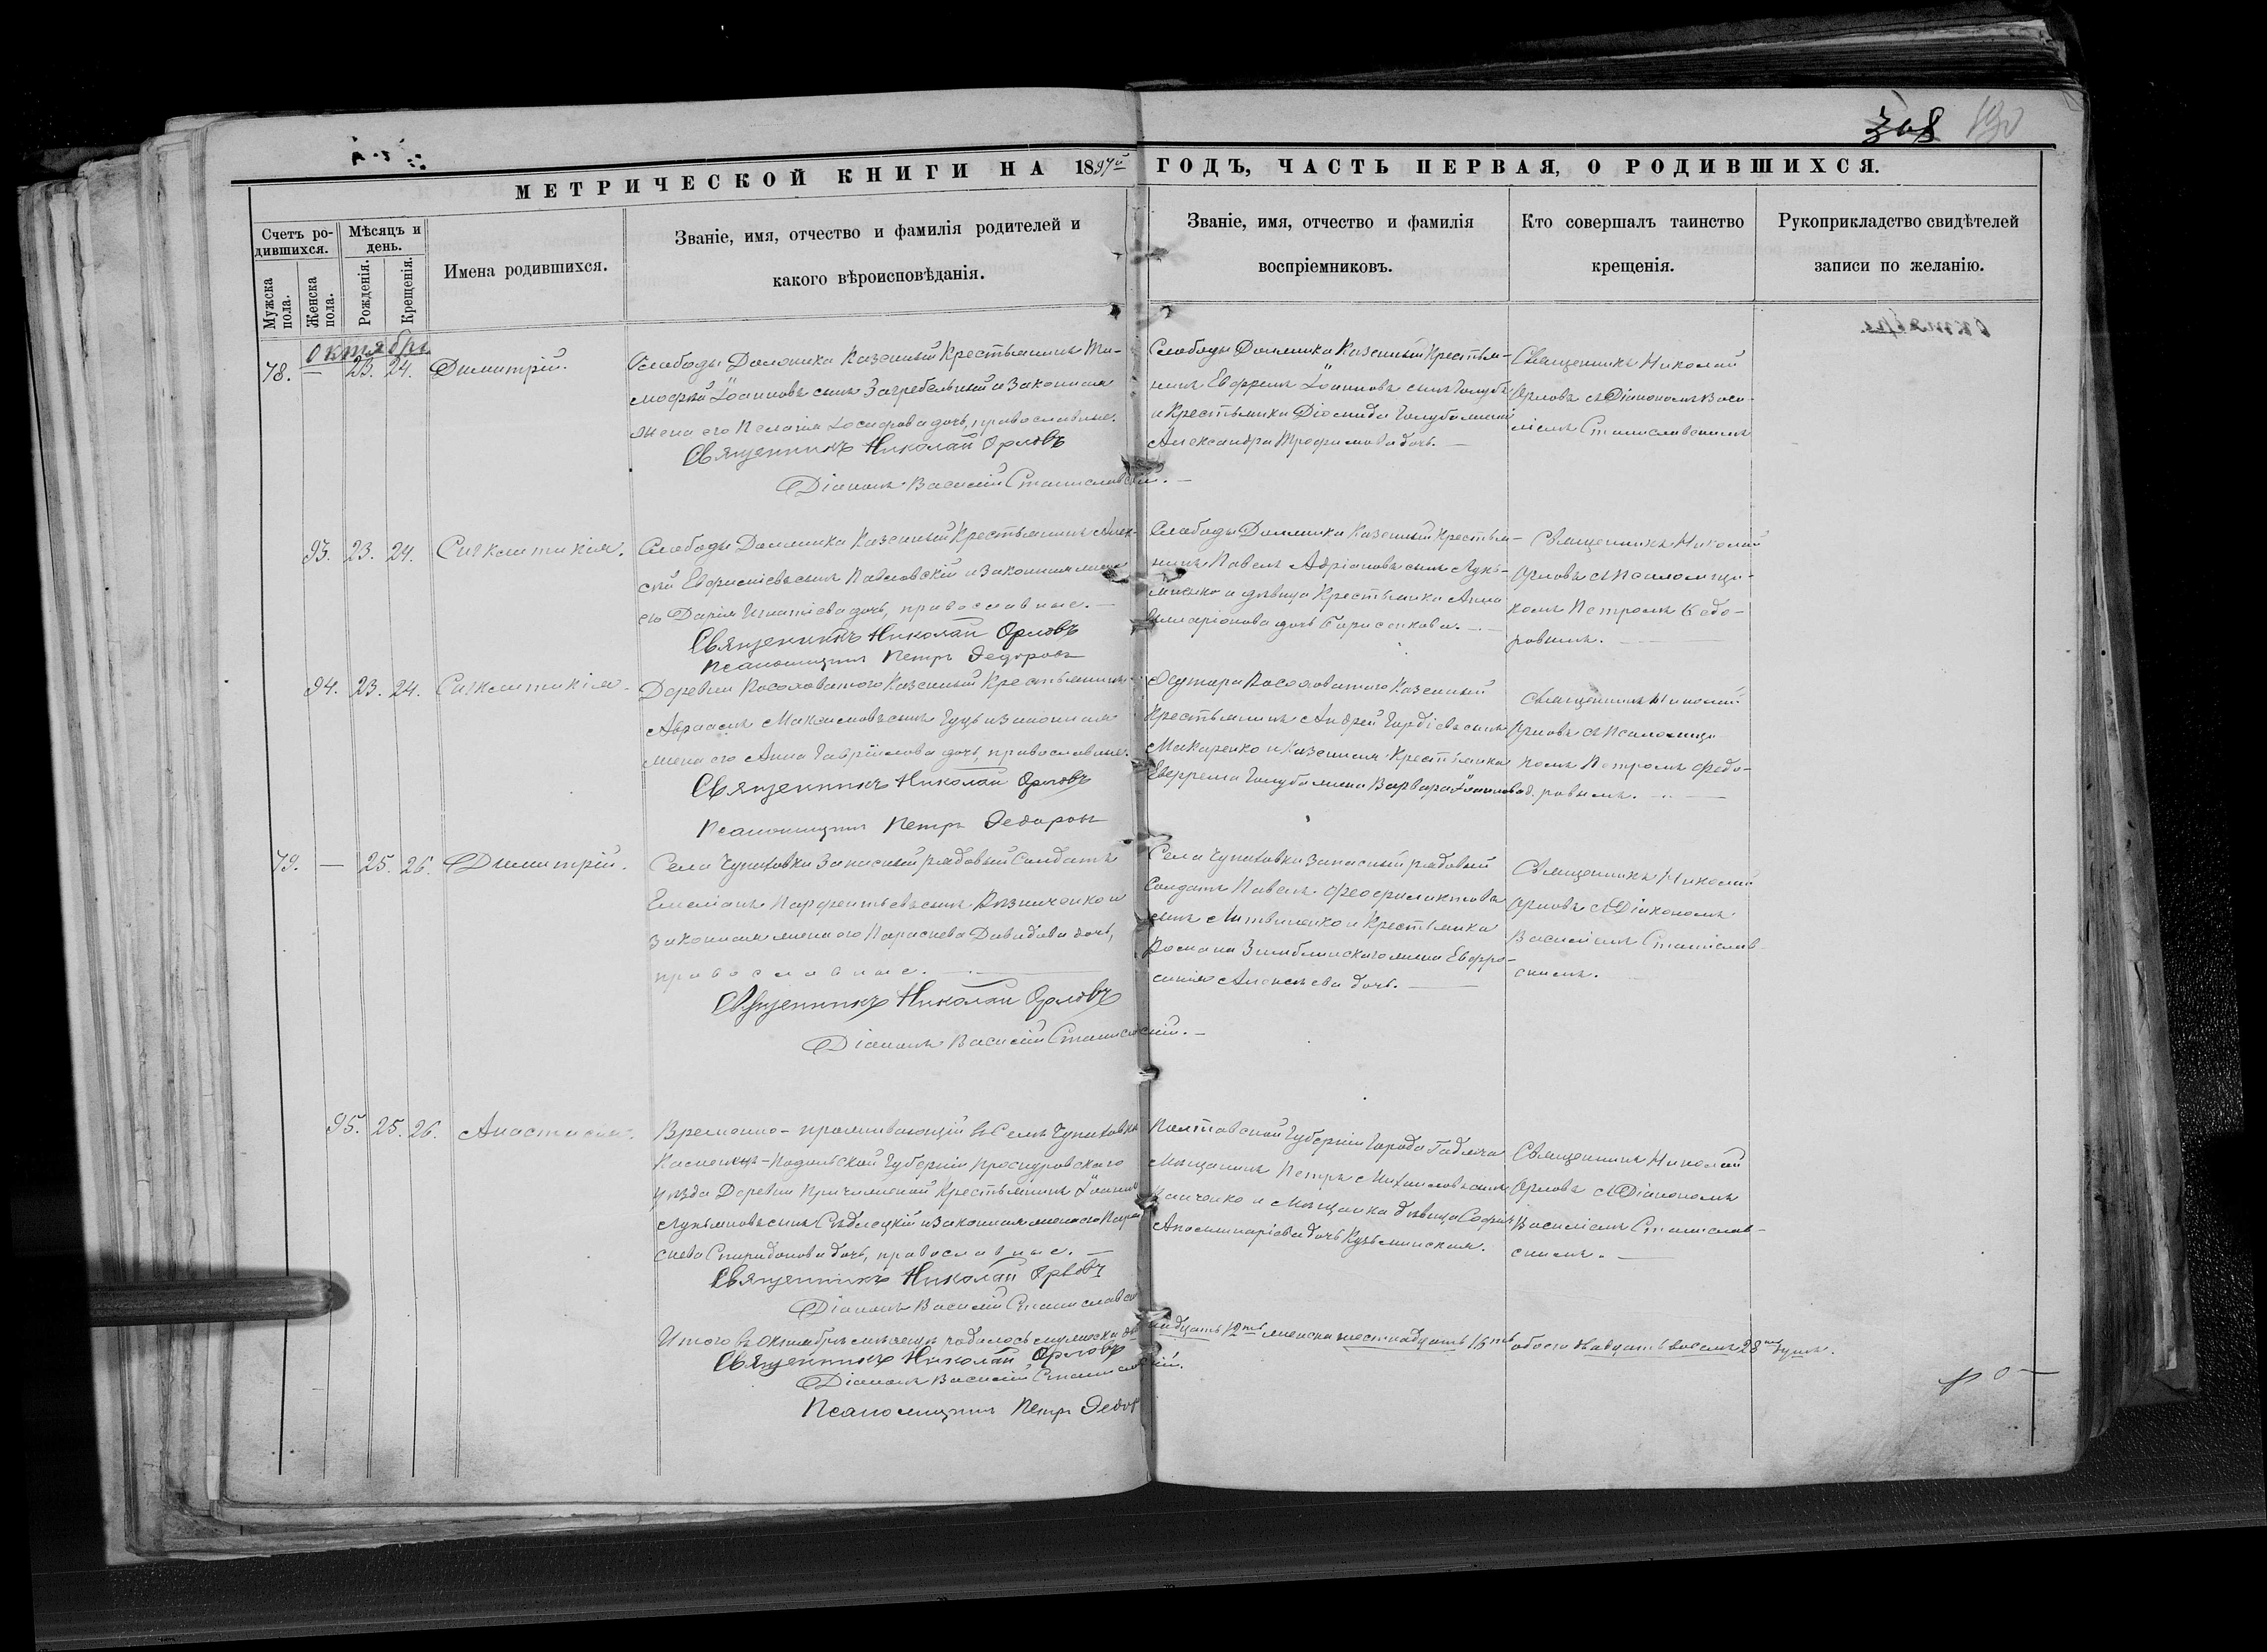 308 190
МЕТРИЧЕСКОЙ КНИГИ НА 1897й ГОДЪ, ЧАСТЬ ПЕРВАЯ, О РОДИВШИХСЯ.
Счетъ ро-
дившихся.
Мужска пола.
Женска пола.
Мѣсяцъ и
день.
Рожденія.
Крещенія.
Имена родившихся.
Званіе, имя, отчество и фамилія родителей и
какого вѣроисповѣданія.
Званіе, имя, отчество и фамилія
воспріемниковъ.
Кто совершалъ таинство
крещенія.
Рукоприкладство свидѣтелей
записи по желанію.
Октябрь
78. — 23. 24. Димитрій.
Слободы Должика Казенный Крестьянинъ Ти-
моѳей Іоанновъ сынъ Загребельный и Законная
жена его Пелагія Іосифова дочь, православные.
Священникъ Николай Орловъ
Діаконъ Василій Станиславскій.
Слободы Должика Казенный Крестья-
нинъ Ефремъ Іоанновъ сынъ Голубъ
и Крестьянка Діомида Голуба жена
Александра Трофимова дочь.
Священникъ Николай
Орловъ съ Діакономъ Васи-
ліемъ Станиславскимъ
93. 23. 24. Сигклитикія.
Слободы Должика Казенный Крестьянинъ Алек-
сѣй сынъ Павловскій и Законная жена
его Дарія Игнатіева дочь, православные.
Священникъ Николай Орловъ
Псаломщикъ Петръ Федоровъ
Слободы Должика Казенный Крестья-
нинъ Павелъ Адріановъ сынъ Лукь-
яненко и дѣвица Крестьянка Анна
Илларіонова дочь Борисенкова.
Священникъ Николай
Орловъ съ Псаломщи-
комъ Петромъ Ѳедо-
ровымъ.
94. 23. 24. Сигклитикія.
Деревни Казенный Крестьянинъ
Максимовъ сынъ Гуцъ и Законная
жена его Анна Гавріилова дочь, православные.
Священникъ Николай Орловъ
Псаломщикъ Петръ Федоровъ
Хутора Казенный
Крестьянинъ Андрей Гордіевъ сынъ
Макаренко и Казенная Крестьянка
Ефрема Голуба жена Варвара Іоаннова д.
Священникъ Николай
Орловъ съ Псаломщи-
комъ Петромъ Федо-
ровымъ.
79. — 25. 26. Димитрій.
Села Чупаховки Запасный рядовый Солдатъ
Емеліанъ Парфентьевъ сынъ Рѣзниченко и
Законная жена его Параскева Давидова дочь,
православные.
Священникъ Николай Орловъ
Діаконъ Василій Станиславскій.
Села Чупаховки Запасный рядовый
Солдатъ Павелъ Феофилактовъ
сынъ Литвиненко и Крестьянка
Романа жена Евфро-
синія Алексѣева дочь.
Священникъ Николай
Орловъ съ Діакономъ
Василіемъ Станислав-
скимъ.
95. 25. 26. Анастасія.
Временно-проживающій въ Селѣ Чупаховкѣ
Каменецъ-Подольской Губерніи Проскуровскаго
уѣзда Деревни Крестьянинъ Іоаннъ
Лукьяновъ сынъ Сѣдлецкій и Законная жена его Пара
скева Спиридонова дочь, православные.
Священникъ Николай Орловъ
Діаконъ Василій Станиславскій
Полтавской Губерніи Города Гадяча
Мѣщанинъ Петръ Михайловъ сынъ
и Мѣщанка дѣвица Софія
Аполлинаріева дочь Кузьминская.
Священникъ Николай
Орловъ съ Діакономъ
Василіемъ Станислав-
скимъ.
Итого въ Октябрѣ мѣсяцѣ родилось мужска двѣнадцать 12ть женска шестнадцать 16ть обоего двадцать восемь 28мь душъ.
Священникъ Николай Орловъ
Діаконъ Василій Станиславскій.
Псаломщикъ Петръ Федор